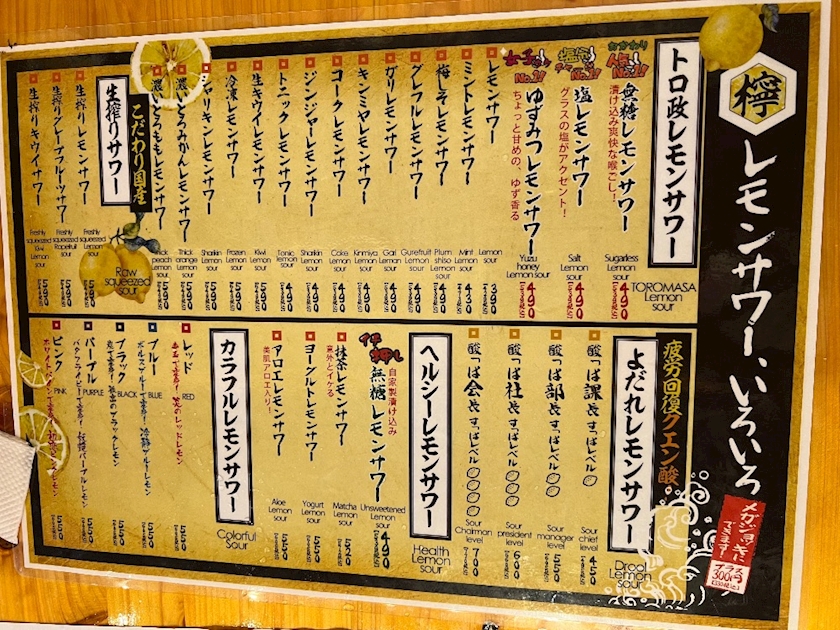 檸
レモンサワー、いろいろ
メガジョッキに
できます!
プラス
300円
トロ政レモンサワー
TOROMASA
Lemon
sour
おかわり
人気
No.1!!
無糖レモンサワー
漬け込み爽快な喉ごし!
Sugarless
Lemon sour
490
No.1!!
塩レモンサワー
グラスの塩がアクセント!
Salt
Lemon sour
490
女子
No.1!!
ゆずみつレモンサワー
ちょっと甘めの、ゆず香る
Yuzu
honey
Lemon sour
490
レモンサワー
Lemon
sour
390
ミントレモンサワー
Mint
Lemon
sour
430
梅しそレモンサワー
Plum
shiso
Lemon
sour
490
グレフルレモンサワー
Gurefruit
Lemon
sour
490
ガリレモンサワー
Gari
Lemon
sour
490
キンミヤレモンサワー
Kinmiya
Lemon
sour
490
コークレモンサワー
Coke
Lemon
sour
490
ジンジャーレモンサワー
Sharkin
Lemon
sour
490
トニックレモンサワー
Tonic
lemon
sour
490
生キウイレモンサワー
Kiwi
Lemon
sour
590
冷凍レモンサワー
Frozen
Lemon
sour
590
シャリキンレモンサワー
Sharkin
Lemon
sour
590
濃いとろみかんレモンサワー
Thick
orange
Lemon
sour
590
濃いとろももレモンサワー
peach
Lemon
sour
590
こだわり国産
生搾りサワー
Raw
squeezed
sour
生搾りレモンサワー
Freshly
squeezed
Lemon
sour
590
生搾りグレープフルーツサワー
Freshly
squeezed
sour
590
生搾りキウイサワー
Freshly
squeezed
Kiwi
Lemon
sour
590
疲労回復クエン酸
よだれレモンサワー
Drool
Lemon
sour
酸っぱ課長 すっぱレベル
Sour
chief
level
450
酸っぱ部長 すっぱレベル
Sour
manager
level
550
酸っぱ社長 すっぱレベル
Sour
president
level
600
酸っぱ会長 すっぱレベル
Sour
Chairman
level
700
ヘルシーレモンサワー
Health
Lemon
sour
イチ押し
自家製漬け込み
無糖レモンサワー
Unsweetened
Lemon
sour
490
抹茶レモンサワー
意外とイケる
Matcha
Lemon
sour
520
ヨーグルトレモンサワー
Yogurt
Lemon
sour
550
アロエレモンサワー
美肌アロエ入り!
Aloe
Lemon
sour
550
カラフルレモンサワー
Colorful
Sour
レッド
RED
550
ブルー
BLUE
550
ブラック
BLACK
550
パープル
PURPLE
550
ピンク
PINK
550